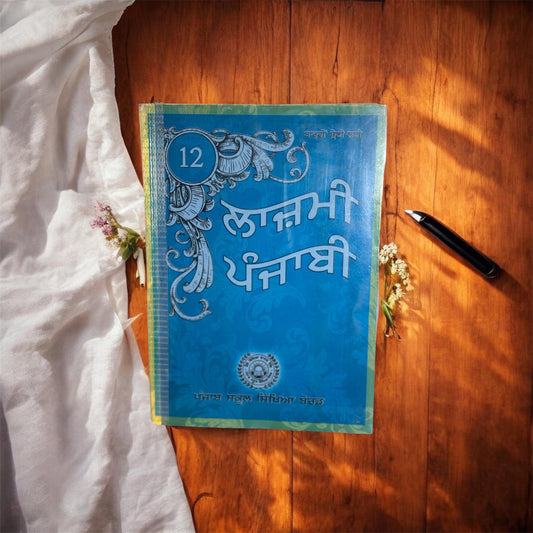 ਬਾਰ੍ਹਵੀਂ ਸ਼੍ਰੇਣੀ ਲਈ
12
ਲਾਜ਼ਮੀ
ਪੰਜਾਬੀ
ਪੰਜਾਬ ਸਕੂਲ ਸਿੱਖਿਆ ਬੋਰਡ